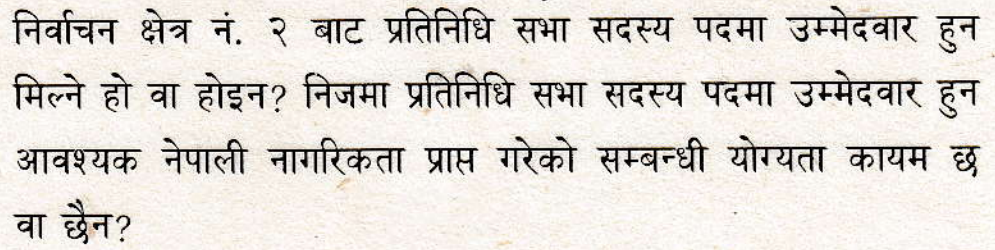 निर्वाचन क्षेत्र नं. २ बाट प्रतिनिधि सभा सदस्य पदमा उम्मेदवार हुन
मिल्ने हो वा होइन? निजमा प्रतिनिधि सभा सदस्य पदमा उम्मेदवार हुन
आवश्यक नेपाली नागरिकता प्राप्त गरेको सम्बन्धी योग्यता कायम छ
वा छैन?